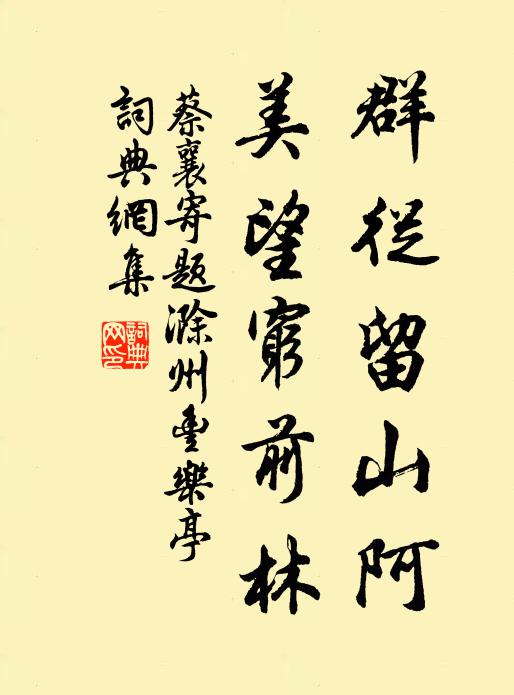 群從留山阿
美望窮前林
蔡襄寄題滁州豐樂亭
詞典網集
詞典網印